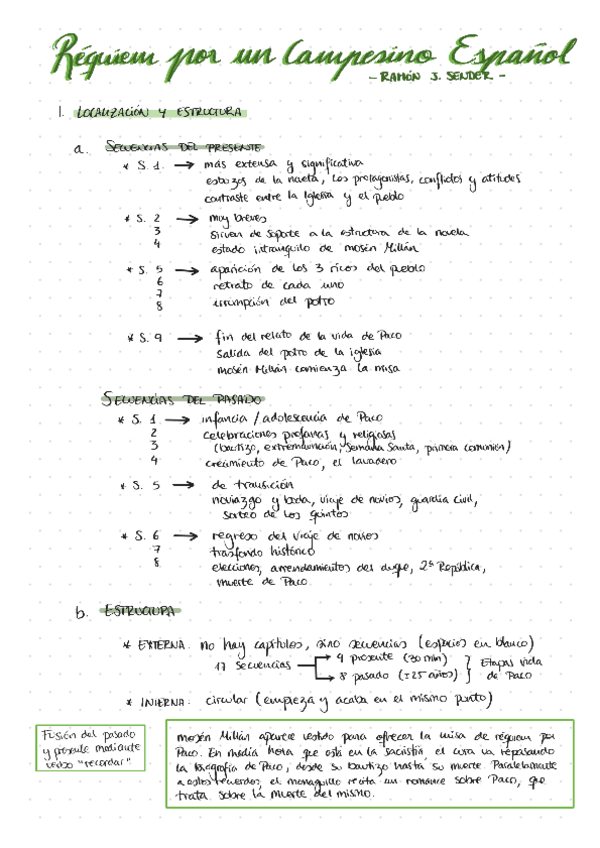 Réquiem por un Campesino Español
- RAMÓN J. SENDER -
1. LOCALIZACIÓN Y ESTRUCTURA
a. SECUENCIAS DEL PRESENTE
* S. 1 → más extensa y significativa
esbozos de la novela, los protagonistas, conflictos y actitudes
contraste entre la Iglesia y el pueblo
* S. 2 → muy breves
3 sirven de soporte a la estructura de la novela
4 estado intranquilo de mosén Millán
* S. 5 → aparición de los 3 ricos del pueblo
6 retrato de cada uno
7 irrumpción del potro
8
* S. 9 → fin del relato de la vida de Paco
salida del potro de la iglesia
mosén Millán comienza la misa
SECUENCIAS DEL PASADO
* S. 1 → infancia / adolescencia de Paco
2 celebraciones profanas y religiosas
3 (bautizo, extremaunción, Semana Santa, primera comunión)
4 crecimiento de Paco, el lavadero
* S. 5 → de transición
noviazgo y boda, viaje de novios, guardia civil,
sorteo de los quintos
* S. 6 → regreso del viaje de novios
7 trasfondo histórico
8 elecciones, arrendamientos del duque, 2ª República,
muerte de Paco
b. ESTRUCTURA
* EXTERNA: no hay capítulos, sino secuencias (espacios en blanco)
17 secuencias → 9 presente (30 min)
→ 8 pasado (±25 años)
Etapas vida
de Paco
* INTERNA: circular (empieza y acaba en el mismo punto)
Fusión del pasado
y presente mediante
verbo "recordar".
mosén Millán aparece vestido para ofrecer la misa de réquiem por
Paco. En media hora que está en la sacristía, el cura va repasando
la biografía de Paco, desde su bautizo hasta su muerte. Paralelamente
a estos recuerdos, el monaguillo recita un romance sobre Paco, que
trata sobre la muerte del mismo.